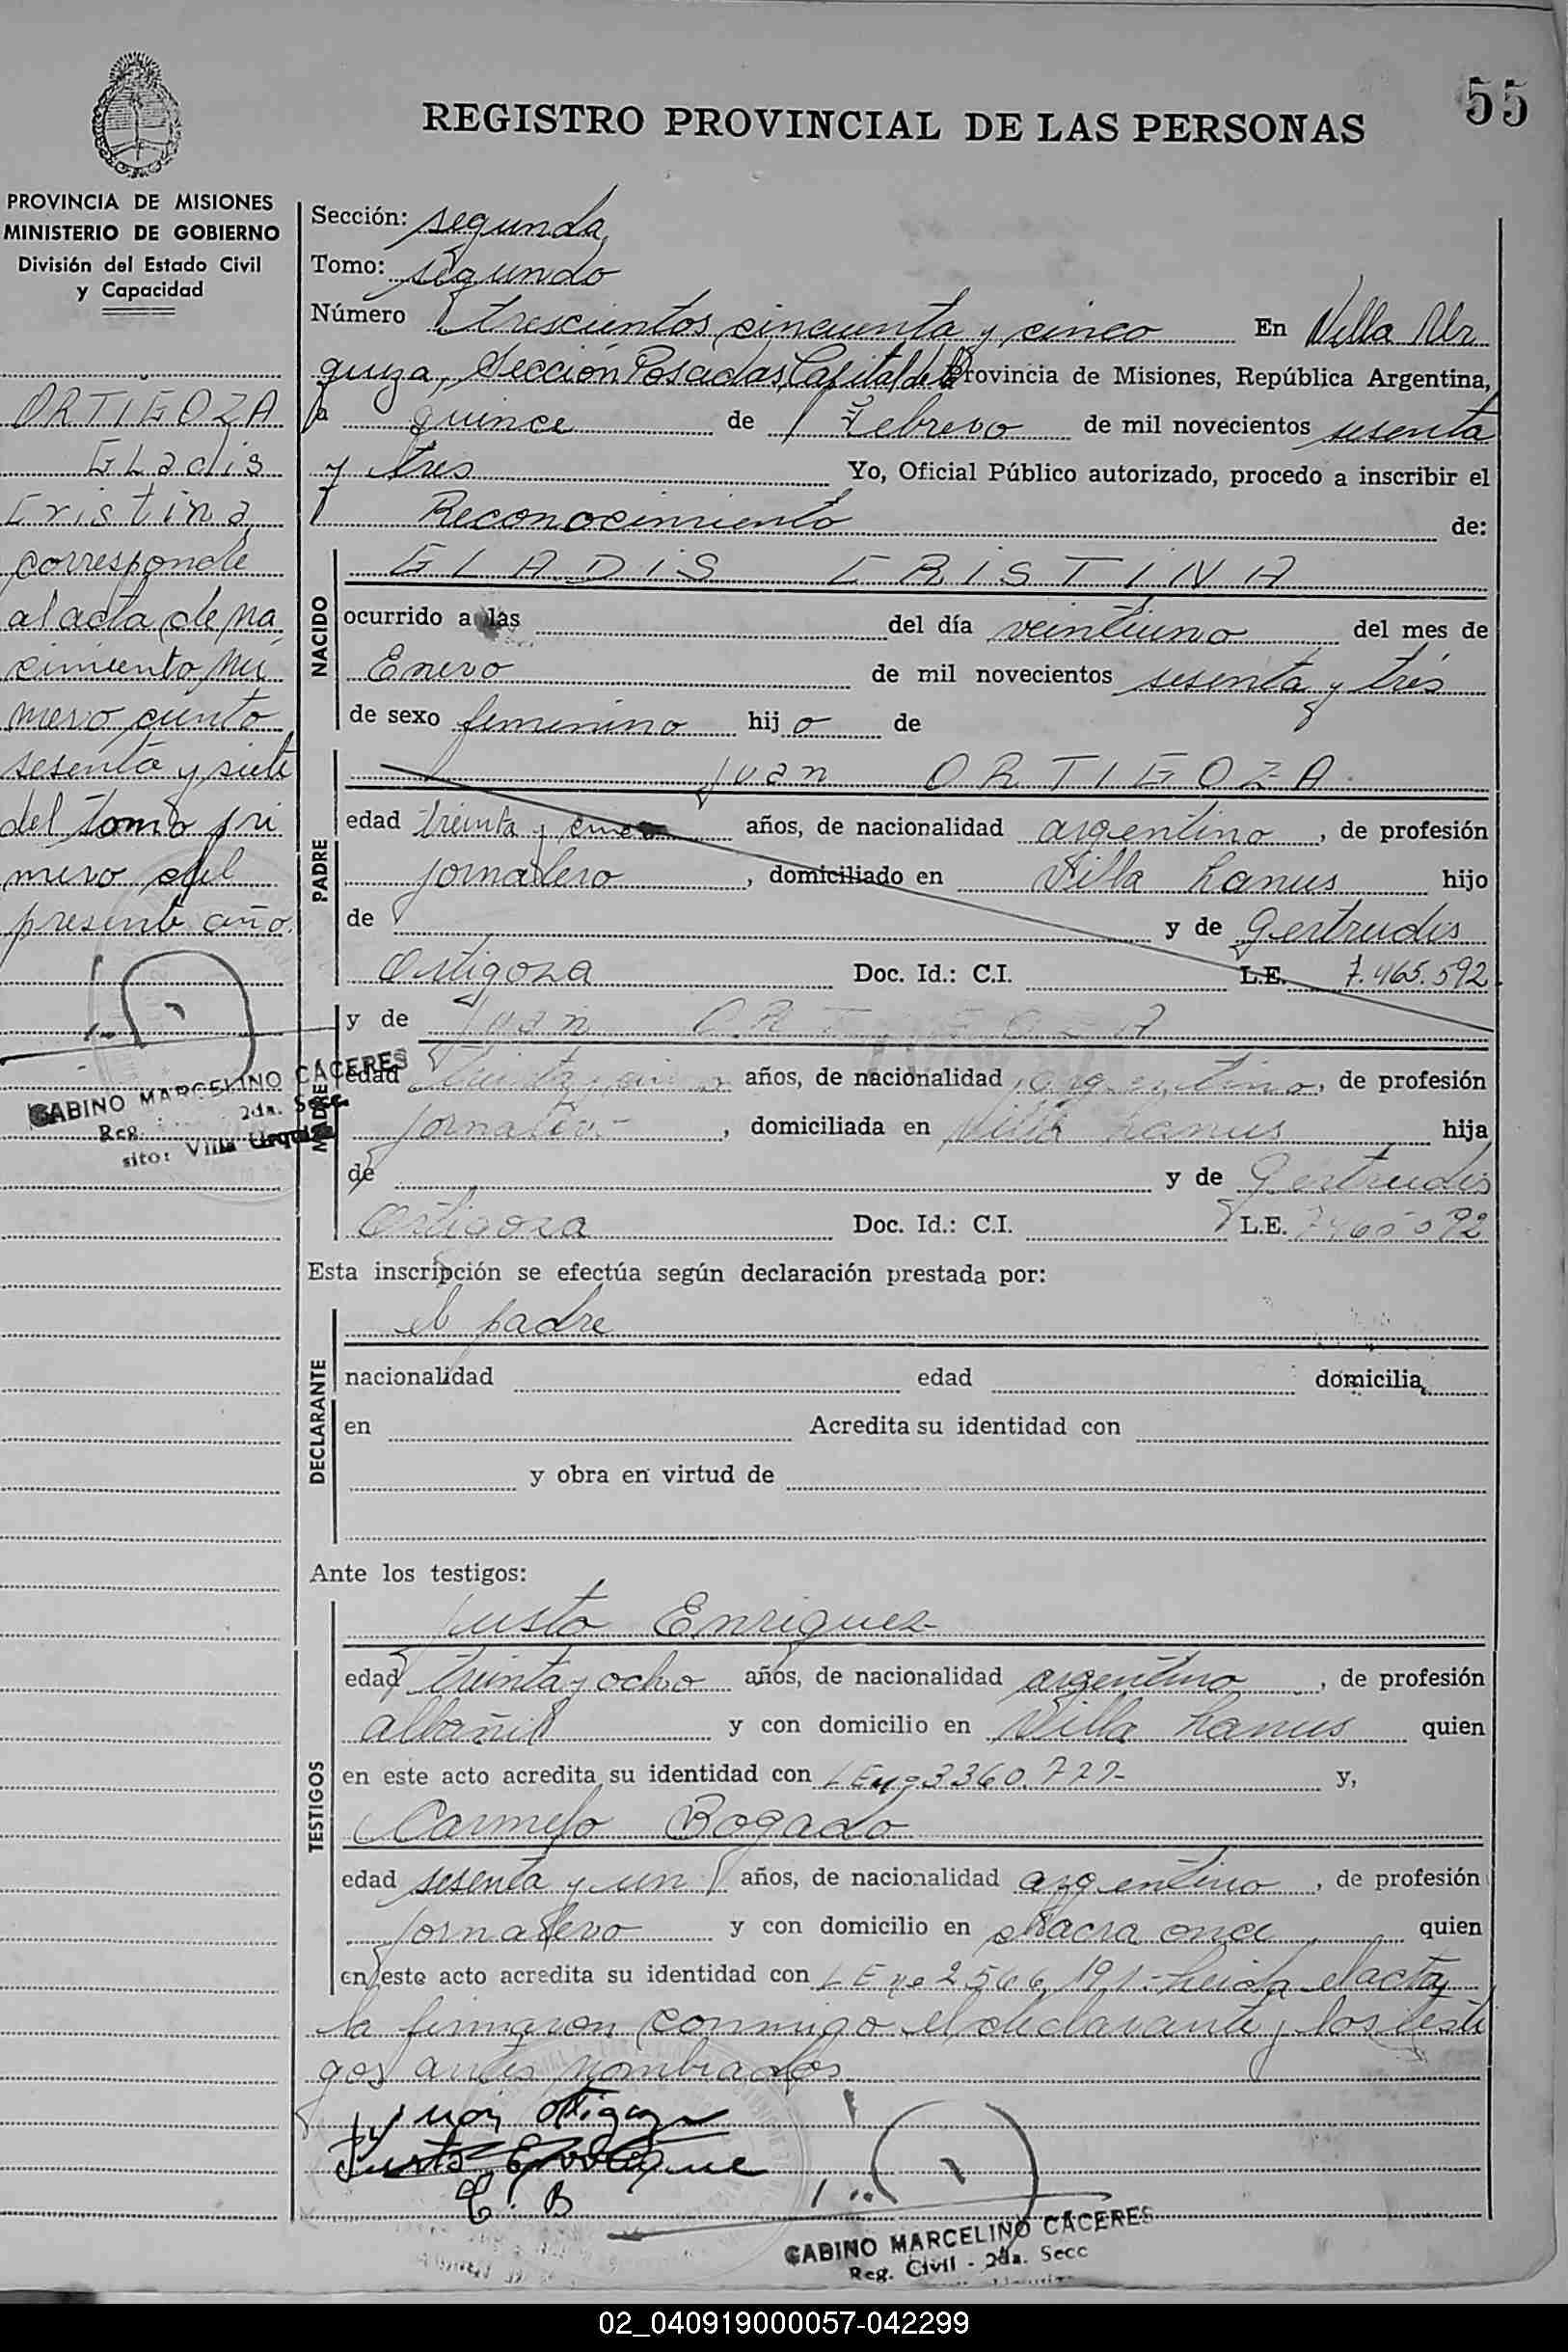 55
REGISTRO PROVINCIAL DE LAS PERSONAS
PROVINCIA DE MISIONES
MINISTERIO DE GOBIERNO
División del Estado Civil
y Capacidad
ORTIGOZA
GLadis
Cristina
corresponde
al acta de na
cimiento nú
mero ciento
sesenta y siete
del tomo pri
mero del
presente año.
GABINO MARCELINO CÁCERES
Reg. 2da. Secc
sito: Villa Urquiza
Sección: segunda
Tomo: segundo
Número trescientos cincuenta y cinco En Villa Ur
quiza, Sección Posadas, Capital de la Provincia de Misiones, República Argentina,
a quince de Febrero de mil novecientos sesenta
y tres Yo, Oficial Público autorizado, procedo a inscribir el
Reconocimiento de:
NACIDO
GLADIS CRISTINA
ocurrido a las del día veintiuno del mes de
Enero de mil novecientos sesenta y trés
de sexo femenino hij o de
PADRE
Juan ORTIGOZA
edad treinta y cinco años, de nacionalidad argentino, de profesión
jornalero, domiciliado en Villa Lanus hijo
de y de Gertrudis
Ortigoza Doc. Id.: C.I. L.E. 7.465.592
MADRE
y de Juan ORTIGOZA
edad treinta y cinco años, de nacionalidad argentino, de profesión
jornalero.-, domiciliada en Villa Lanus hija
de y de Gertrudis
Ortigoza Doc. Id.: C.I. L.E. 7465592
Esta inscripción se efectúa según declaración prestada por:
DECLARANTE
el padre
nacionalidad edad domicilia
en Acredita su identidad con
y obra en virtud de
Ante los testigos:
TESTIGOS
Justo Enriquez-
edad treinta y ocho años, de nacionalidad argentino, de profesión
albañil y con domicilio en Villa Lanus quien
en este acto acredita su identidad con LE nº 3360.727- y,
Carmelo Bogado
edad sesenta y un años, de nacionalidad argentino, de profesión
jornalero y con domicilio en chacra once quien
en este acto acredita su identidad con LE nº 2566.191- Leida el acta,
la firmaron conmigo el declarante y los testi
gos antes nombrados.
Juan Ortigoza
Justo Enrique
C. B
GABINO MARCELINO CÁCERES
Reg. Civil - 2da. Secc
02_040919000057-042299